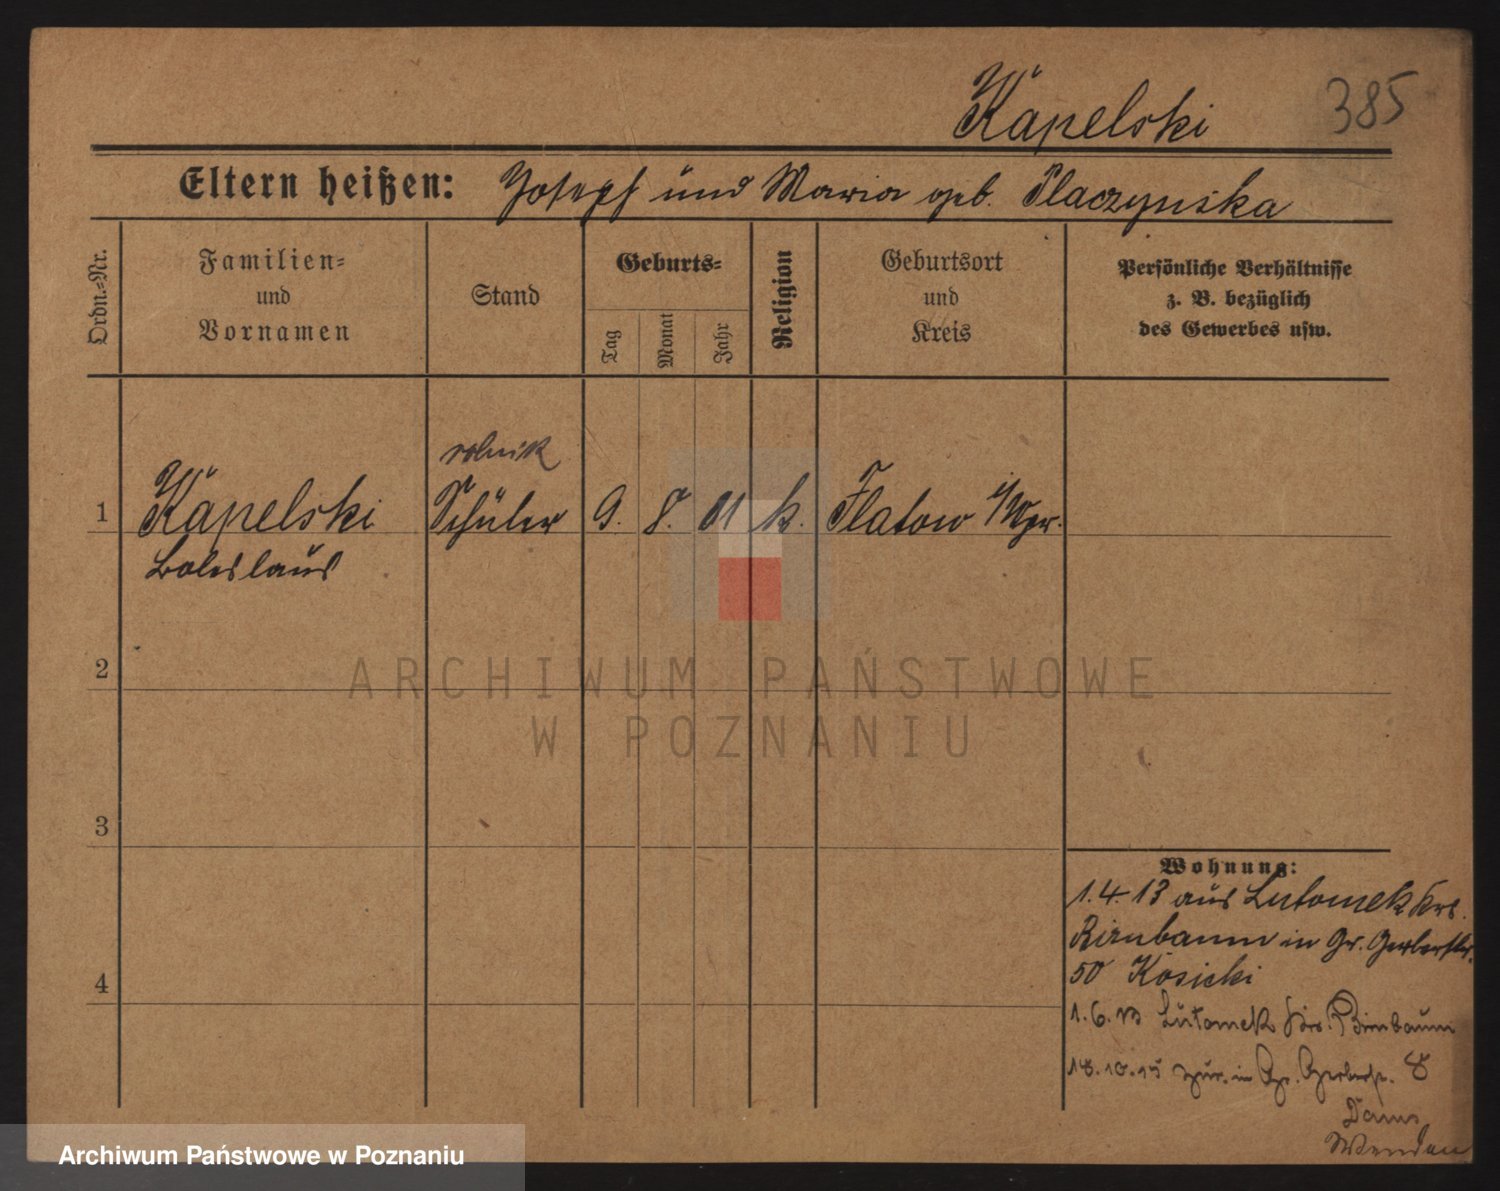 Kapelski 385
Eltern heißen: Joseph und Maria geb. Placzynska
Ordn.-Nr.
Familien-
und
Vornamen
Stand
Geburts-
Tag
Monat
Jahr
Religion
Geburtsort
und
Kreis
Persönliche Verhältnisse
z. B. bezüglich
des Gewerbes usw.
rolnik
1 Kapelski Schüler 9. 8. 01 k. Flatow i/Wpr.
Boleslaus
2
3
4
Wohnung:
1.4.13 aus Lutomek Krs.
Birnbaum in Gr. Gerberstr.
50 Kosicki
1.6.13 Lutomek Krs. Birnbaum
18.10.15 zur. in Gr. Gerberstr. 8
ARCHIWUM PAŃSTWOWE
W POZNANIU
Archiwum Państwowe w Poznaniu